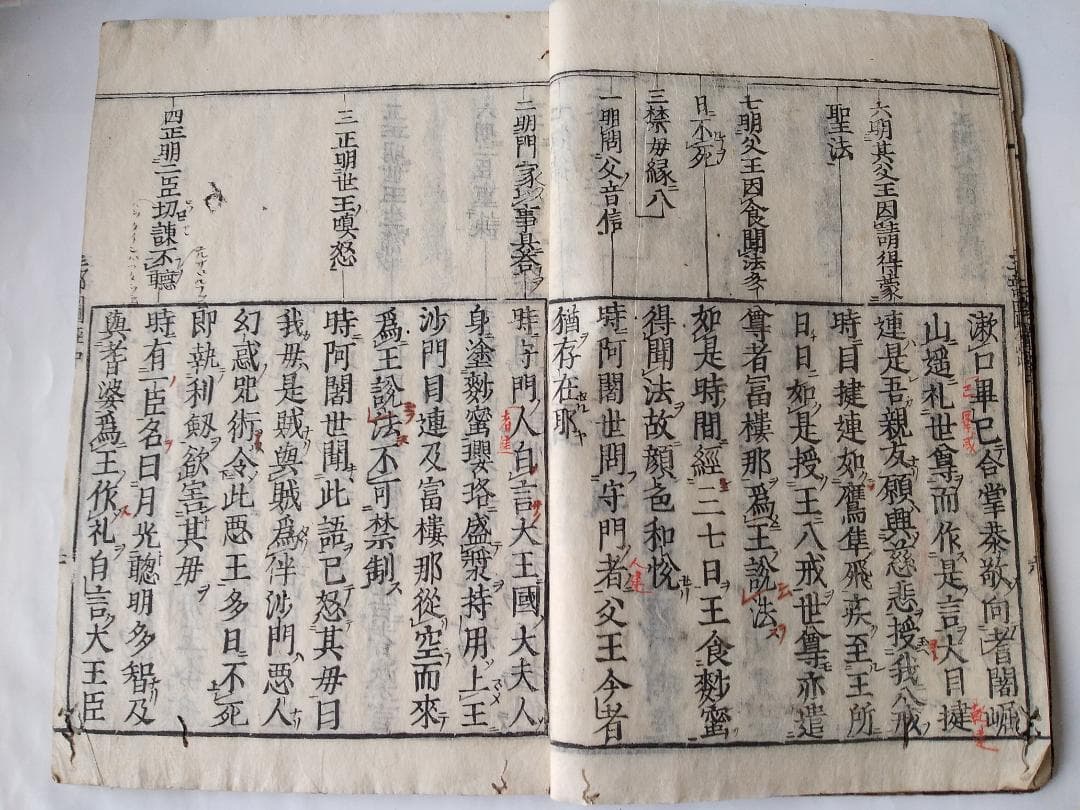 六明其父王因請得蒙
聖法
七明父王因食聞法多
日不死
三禁母縁八
一明問父音信
漱口畢已合掌恭敬向耆闍崛
山遥礼世尊而作是言大目揵
連是吾親友願興慈悲授我八戒
時目揵連如鷹隼飛疾至王所
日日如是授王八戒世尊亦遣
尊者冨樓那爲王說法
如是時間經三七日王食麨蜜
得聞法故顔色和悅
時阿闍世問守門者父王今者
猶存在耶
二明門家以事具答
三正明世王嗔怒
四正明二臣切諌不聽
時守門人白言大王國大夫人
身塗麨蜜瓔珞盛漿持用上王
沙門目連及富樓那從空而來
爲王說法不可禁制
時阿闍世聞此語已怒其母曰
我母是賊與賊爲伴沙門惡人
幻惑咒術令此惡王多日不死
即執利劔欲害其母
時有一臣名曰月光聰明多智及
與耆婆爲王作礼白言大王臣